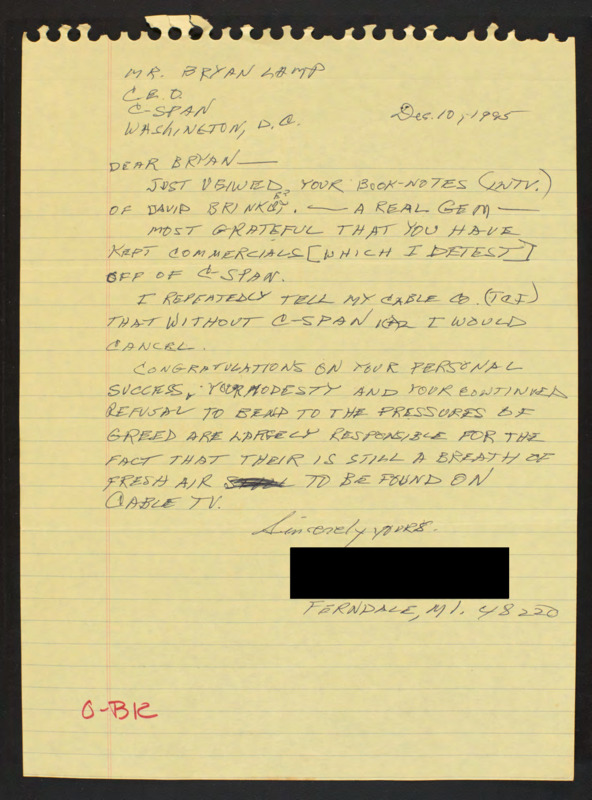 MR. BRYAN LAMP
C.E.O.
C-SPAN
WASHINGTON, D.C.
Dec. 10, 1995
DEAR BRYAN—
JUST VEIWED YOUR BOOK-NOTES (INTV.)
OF DAVID — A REAL GEM —
MOST GRATEFUL THAT YOU HAVE
KEPT COMMERCIALS [WHICH I DETEST]
OFF OF C-SPAN.
I REPEATEDLY TELL MY CABLE CO. (TCI)
THAT WITHOUT C-SPAN I WOULD
CANCEL.
CONGRATULATIONS ON YOUR PERSONAL
SUCCESS, YOUR MODESTY AND YOUR CONTINUED
REFUSAL TO BEND TO THE PRESSURES OF
GREED ARE LARGELY RESPONSIBLE FOR THE
FACT THAT THEIR IS STILL A BREATH OF
FRESH AIR TO BE FOUND ON
CABLE TV.
Sincerely yours.
FERNDALE, MI. 48220
O-BK